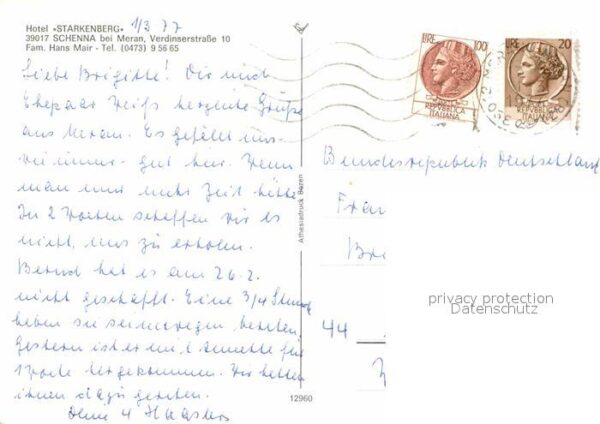 Hotel «STARKENBERG» 1/3 77
39017 SCHENNA bei Meran, Verdinserstraße 10
Fam. Hans Mair - Tel. (0473) 9 56 65
Liebe Brigitte! Dir und
Ehepaar herzliche Grüße
aus Meran. Es gefällt uns
wie immer gut hier. Wenn
man nur mehr Zeit hätte
In 2 Wochen schaffen wir es
nicht, uns zu erholen.
Bernd hat es am 26.2.
nicht geschafft. Eine 3/4 Stunde
haben sie seinetwegen beraten.
Gestern ist er mit Annette für
1 Woche hergekommen. Wir hatten
ihnen dazu geraten.
Deine 4
Athesiadruck Bozen
12960
LIRE 100
REPUBBLICA
ITALIANA
LIRE 20
REPUBBLICA
ITALIANA
Bundesrepublik Deutschland
Frau
Br
44
privacy protection
Datenschutz